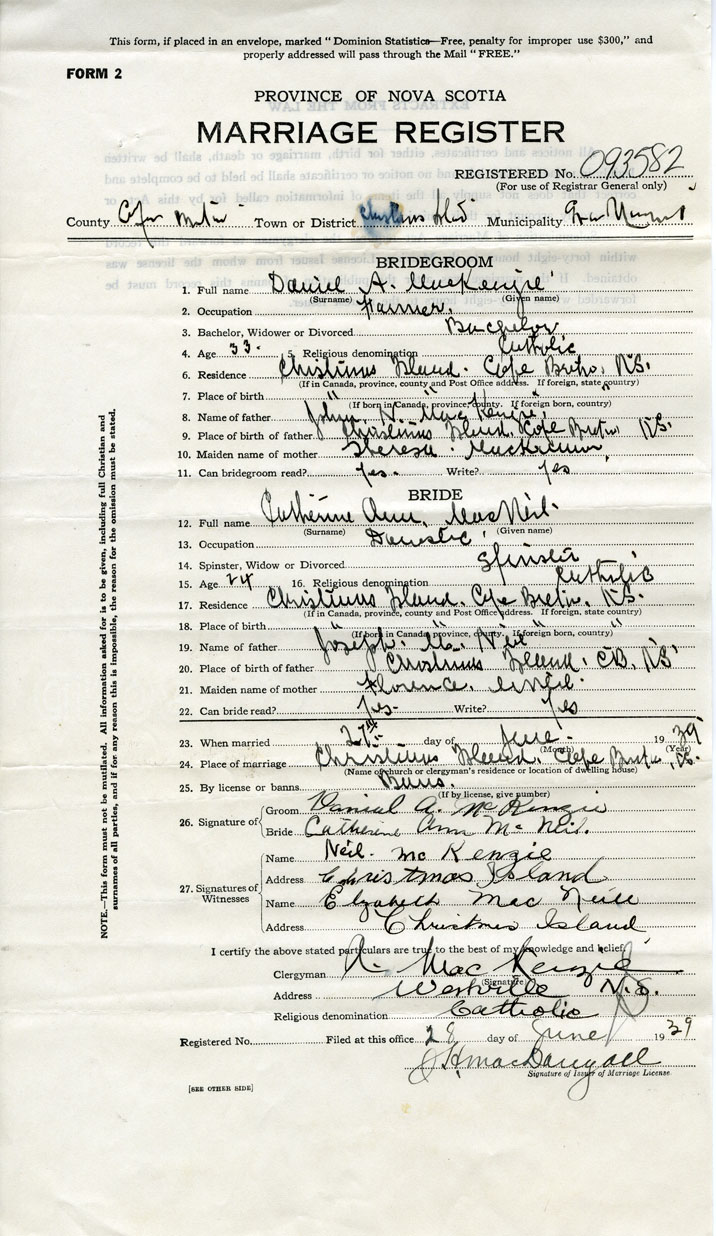 This form, if placed in an envelope, marked "Dominion Statistics—Free, penalty for improper use $300," and
properly addressed will pass through the Mail "FREE."
FORM 2
PROVINCE OF NOVA SCOTIA
MARRIAGE REGISTER
REGISTERED No. 093582
(For use of Registrar General only)
County Cape Breton Town or District Christmas Isld Municipality
BRIDEGROOM
1. Full name Daniel A. MacKenzie
(Surname) (Given name)
2. Occupation Farmer.
3. Bachelor, Widower or Divorced Bachelor
4. Age 33. 5. Religious denomination Catholic
6. Residence Christmas Island. Cape Breton, N.S.
(If in Canada, province, county and Post Office address. If foreign, state country)
7. Place of birth " " " "
(If born in Canada, province, county. If foreign born, country)
8. Name of father John N. MacKenzie,
9. Place of birth of father Christmas Island, Cape Breton N.S.
10. Maiden name of mother Theresa MacKinnon,
11. Can bridegroom read? Yes. Write? Yes
BRIDE
12. Full name Catherine Ann, MacNeil.
(Surname) (Given name)
13. Occupation Domestic
14. Spinster, Widow or Divorced Spinster
15. Age 24 16. Religious denomination Catholic
17. Residence Christmas Island. Cape Breton, N.S.
(If in Canada, province, county and Post Office address. If foreign, state country)
18. Place of birth " " " "
(If born in Canada, province, county. If foreign born, country)
19. Name of father Joseph. Mc. Neil
20. Place of birth of father Christmas Island. C.B. N.S.
21. Maiden name of mother Florence.
22. Can bride read? Yes. Write? Yes
23. When married 27th day of June 1939
(Month) (Year)
24. Place of marriage Christmas Island. Cape Breton, N.S.
(Name of church or clergyman's residence or location of dwelling house)
25. By license or banns Banns.
(If by license, give number)
26. Signature of
Groom Daniel A. McKenzie
Bride Catherine Ann McNeil.
27. Signatures of Witnesses
Name Neil. McKenzie
Address Christmas Island
Name Elizabeth MacNeill
Address Christmas Island
I certify the above stated particulars are true to the best of my knowledge and belief.
Clergyman A. MacKenzie
(Signature)
Address Westville N.S.
Religious denomination Catholic
Registered No. Filed at this office 28 day of June 1939
J.H. MacDougall
Signature of Issuer of Marriage License
[SEE OTHER SIDE]
NOTE.—This form must not be mutilated. All information asked for is to be given, including full Christian and
surnames of all parties, and if for any reason this is impossible, the reason for the omission must be stated.